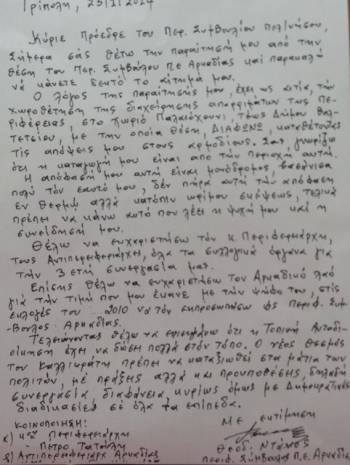 Τρίπολη, 25/2/2014
Κύριε Πρόεδρε του Περ. Συμβουλίου Πελ/νήσου,
Σήμερα σας θέτω την παραίτησή μου από την
θέση του Περ. Συμβούλου Π.Ε Αρκαδίας και παρακαλώ
να κάνετε δεκτό το αίτημά μου.
Ο λόγος της παραίτησής μου, έχει ως αιτία, την
χωροθέτηση της διαχείρησης απορριμάτων της Πε-
ριφέρειας, στο χωριό Παλαιόχουνι, τέως Δήμου Βαλ-
τετσίου, με την οποία θέση, ΔΙΑΦΩΝΩ, καταθέτοντας
τις απόψεις μου στους αρμόδιους. Σας γνωρίζω
ότι η καταγωγή μου είναι από την περιοχή αυτή.
Η απόφασή μου αυτή είναι μονόδρομος,
πολύ τον εαυτό μου, δεν πήρα αυτή την απόφαση
εν θερμώ αλλά κατόπιν ωρίμου σκέψεως, τελικά
πρέπει να κάνω αυτό που λέει η ψυχή μου και η
συνείδησή μου.
Θέλω να ευχαριστήσω τον κ. Περιφερειάρχη,
τους Αντιπεριφερειάρχη, όλα τα συλλογικά όργανα για
την 3 ετή συνεργασία μας.
Επίσης θέλω να ευχαριστήσω τον Αρκαδικό λαό
για την τιμή που μου έκανε με την ψήφο του, στις
εκλογές του 2010 να τον εκπροσωπώ ως Περιφ. Συμ-
βουλος Αρκαδίας.
Τελειώνοντας θέλω να ότι η Τοπική Αυτοδι-
οίκηση έχει να δώσει πολλά στον τόπο. Ο νέος θεσμός
του Καλλικράτη πρέπει να καταξιωθεί στα μάτια των
πολιτών, με πράξεις αλλά και προυποθέσεις, δηλαδή
συνεργασία, διαφάνεια, κυρίως όμως με Δημοκρατικές
διαδικασίες σε όλα τα επίπεδα.
ΚΟΙΝΟΠΟΙΗΣΗ:
Με εκτίμηση
α) κον Περιφερειάρχη
Πέτρο Τατούλη
Θεοδ. Ντάνος
β) Αντιπεριφερειάρχ Αρκαδίας
Περιφ. Σύμβουλος Π.Ε. Αρκαδία